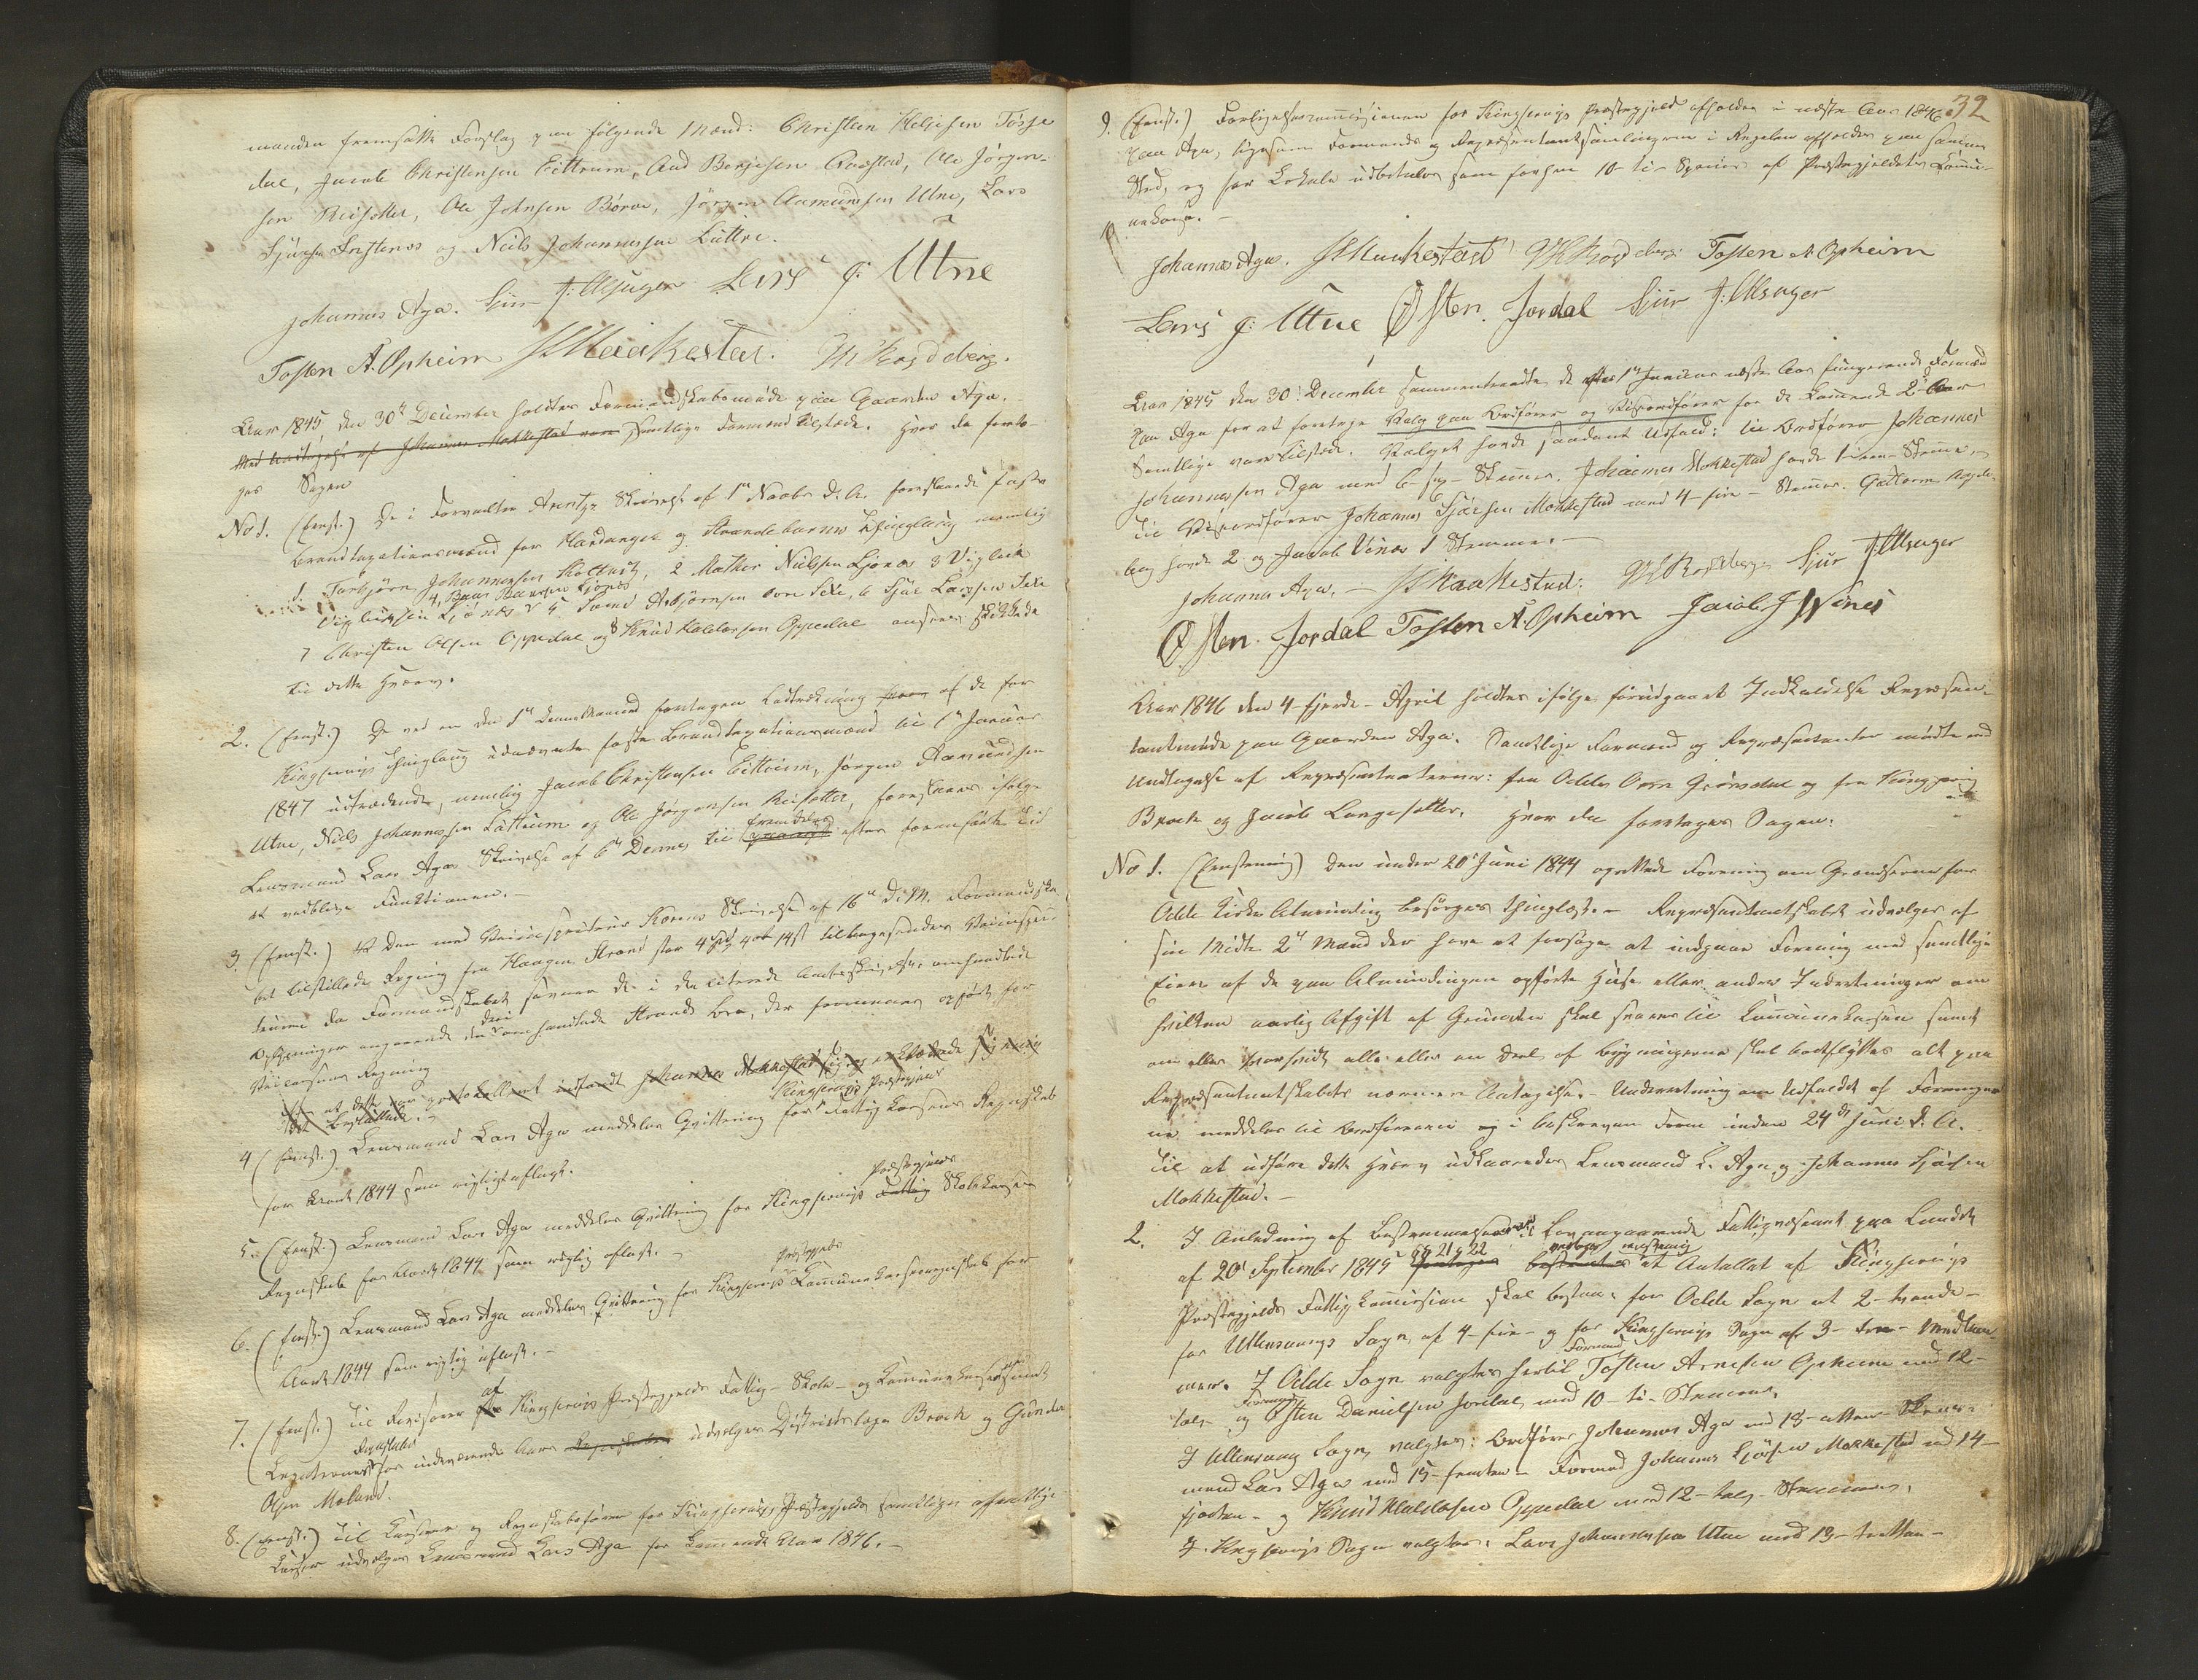 manden fremsatte Forslag paa følgende Mænd: Christen Helgesen Tjosse
dal, Jacob Christensen Eittrum, Aad Bergesen Qvæstad, Ole Jørgen-
sen Reisæter, Ole Johnsen Børve, Jørgen Aamundsen Utne, Lars
Sjursen og Niels Johannesen Lutтro.
Johannes Aga. Siur J: Alsager Lars J: Utne
Tosten A. Opheim JS Maakestad. M Rosdeberg.
Aar 1845 den 30te December holdtes Formandskabsmøde paa Gaarden Aga.
Med Undtagelse af Johannes Mokkestad vare samtlige Formænd tilstæde. Hvor da foreto-
ges Sagen
No 1. (Enst.) De i Forvalter Arentzs Skrivelse af 1te Novbr d. A. foreslaaede faste
Brandtaxationsmænd for Hardanger og Strandebarms Thinglaug nemlig
1. Torbjørn Johannessen Skeltveit, 2 Mathis Nielsen Ljonæs 3 Vigleik
4, Baar Baarsen Ljones
Vigleiksen Ljones 5 Svend Asbjørnsen øvre Sexe, 6 Sjur Larsen Sexe
7 Christen Olsen Oppedal og 8 Knud Haldorsen Oppedal ansees skikkede
til dette Hverv.
2. (Enst.) De ved en den 1te dennes foretagen Lodtrækning af de for
Kingservigs Thinglaug udnævnte faste Brandtaxationsmænd til 1te Januar
1847 udtrædende, nemlig Jacob Christensen Eittreim, Jørgen Aamundsen
Utne, Niels Johannessen Luttrum og Ole Jørgensen Reisæter, foreslaaes ifølge
Lensmand Lars Agas Skrivelse af 6te Dennes til fremdeles efter foranførte Tid
at vedblive Funktionen.
3. (Enst.) At den med Veiinspecteur Skrivelse af 16de d. M. Formandska-
bet tilstillede Regning fra Haagen Strand stor 4 Spd 4 ort 14 s tilbagesendes Veiinspec-
teuren da Formandskabet savner de i den citerede Ambtskrivelse omhandlede
Oplysninger angaaende den deri omhandlede Strands Bro, der formenes opført for
Veivæsens Regning
4 (Enst.) Lensmand Lars Aga meddeles Qvittering for Kingservigs Præstegjelds Fattigkasses Regnskab
for Aaret 1844 som rigtigt aflagt.
5. (Enst.) Lensmand Lars Aga meddeles Qvittering for Kingservigs Præstegjelds Skolekasses
Regnskab for Aaret 1844 som rigtig aflagt.
6. (Enst.) Lensmand Lars Aga meddeles Qvittering for Kingservigs Præstegjelds Kommunekasseregnskab for
Aaret 1844 som rigtig aflagt.
7. (Enst.) Til Revisorer af Kingservigs Præstegjelds Fattig- Skole- og Kommunekasser samt
Legaternes Regnskaber for indeværende Aar udvælges Districtslæge Brock og Gunder
Olsen Moland.
8. (Enst.) Til Kasserer og Regnskabsfører for Kingservigs Præstegjelds samtlige offentlige
Kasser udvælges Lensmand Lars Aga for kommende Aar 1846.
39
9. (Enst.) Forligelsescommissionen for Kingservigs Præstegjeld afholdes i næste Aar 1846
paa Aga, ligesom Formands og Repræsentantsamlingerne i Regelen afholdes paa samme
Sted, og for Lokale udbetales som forhen 10- ti- Species af Præstegjeldets Kommu-
nekasse.
10
Johannes Aga. JS Maakestad M Rosdeberg Tosten A Opheim
Lars J: Utne Østen. Jordal Siur J: Alsager
Aar 1845 den 30te December sammentraadte de efter 1te Januar næste Aar fungerende Formænd
paa Aga for at foretage Valg paa Ordfører og Viceordfører for de kommende 2 Aar
Samtlige vare tilstede. Valget havde saadant Udfald: til Ordfører Johannes
Johannessen Aga med 6- sex- Stemmer. Johannes Mokkestad havde 1- een- Stemme.
Til Viceordfører Johannes Sjursen Mokkestad med 4- fire- Stemmer.
havde 2 og Jacob Vines 1 Stemme.
Johannes Aga, JS Maakestad: M Rosdeberg Siur J: Alsager
Østen. Jordal Tosten A. Opheim Jacob J Wines
Aar 1846 den 4- fjerde- April holdtes ifølge forudgaaet Indkaldelse Repræsen-
tantmøde paa Gaarden Aga. Samtlige Formænd og Repræsentanter mødte med
Undtagelse af Repræsentanterne: fra Odde Orm Grønsdal og fra Kingservig
Brock og Jacob Langesæter. Hvor da foretages Sagen:
No 1. (Enstemmig) Den under 20de Juni 1844 oprettede Forening om Grændserne for
Odde Kirke Alminding besørges thinglæst. Repræsentantskabet udvælger af
sin Midte 2de Mænd der have at forsøge at indgaae Forening med samtlige
Eiere af de paa Almindingen opførte Huse eller andre Indretninger om
hvilken aarlig Afgift af Grunden skal svares til Kommunekassen samt
om eller hvorvidt alle eller en Deel af Bygningerne skal bortflyttes alt paa
Repræsentantskabets nærmere Antagelse. Underretning om Udfaldet af Foreninger-
ne meddeles til Ordføreren og i beskreven Form inden 24de Juni d. A.
Til at udføre dette Hverv udkaaredes Lensmand L. Aga og Johannes Sjursen
Mokkestad.
2. I Anledning af Bestemmelserne i Lov angaaende Fattigvæsenet paa Landet
af 20de September 1845 §§ 21 & 22 vedtoges enstemmig at Antallet af Kingservigs
Præstegjelds Fattigkommission skal bestaae: for Odde Sogn at 2- tvende-
for Ullensvangs Sogn, af 4- fire- og for Kingservigs Sogn af 3- tre- Medlem-
mer. I Odde Sogn valgtes hertil Formand Tosten Arnesen Opheim med 12-
tolv- og Formand Østen Danielsen Jordal med 10- ti- Stemmer.
I Ullensvang Sogn, valgtes: Ordfører Johannes Aga med 18- atten- Stemmer
mand Lars Aga med 15- femten- Formand Johannes Sjørsen Mokkestad med 14-
fjorten- og Knud Haldorsen Oppedal med 12- tolv- Stemmer.
I Kingservigs Sogn valgtes: Lars Johannessen Utne med 13- tretten-